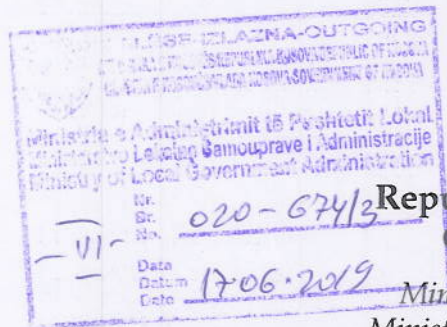 DALËSE-IZLAZNA-OUTGOING
REPUBLIC OF KOSOVA
Ministria e Administrimit të Pushtetit Lokal
Ministarstvo Lokalne Samouprave i Administracije
Ministry of Local Government Administration
Nr.
Br.
No. 020-674/3
-VI-
Repu
Data
Datum
Date 17.06.2019
Min
Minist